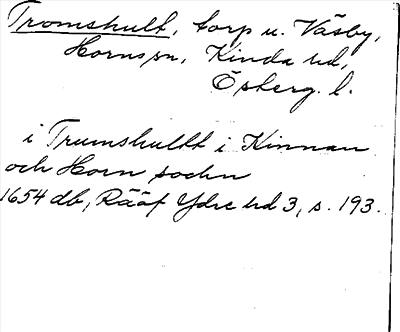 Tromshult, torp u. Väsby,
Horns sn, Kinda hd,
Österg. l.
i Trumshultt i Kinnan
och Horn sochn
1654 db, Rääf Ydre hd 3, s. 193.